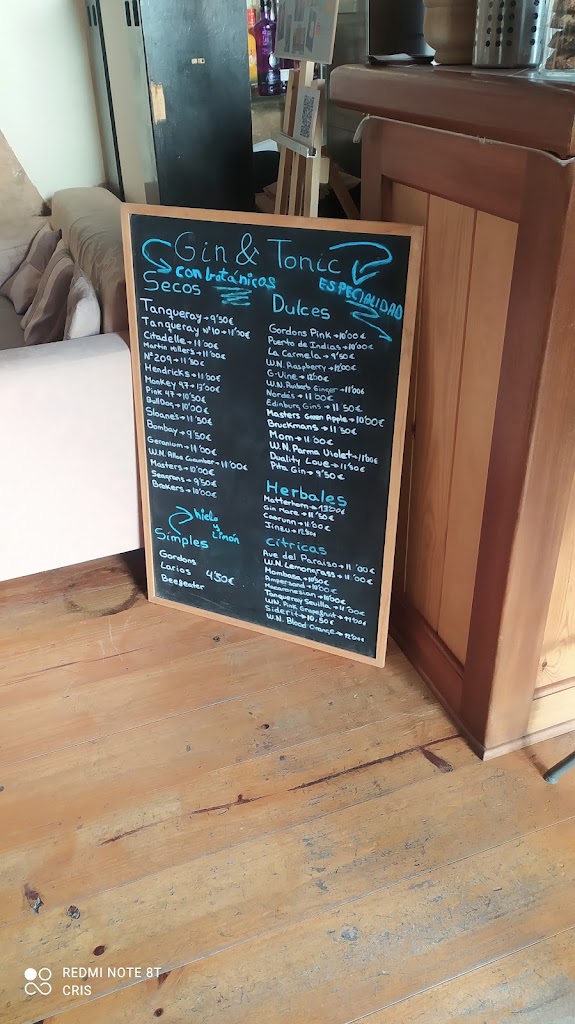 Gin & Tonic
con botánicos
ESPECIALIDAD
Secos
Tanqueray → 9'50€
Tanqueray Nº10 → 11'00€
Citadelle → 11'00€
Martin Millers → 11'00€
Nº209 → 11'50€
Hendricks → 11'00€
Monkey 47 → 13'00€
Pink 47 → 10'50€
BullDog → 10'00€
Sloane's → 11'50€
Bombay → 9'50€
Geranium → 11'00€
W.N. Cucumber → 11'00€
Masters → 10'00€
Seagrams → 9'50€
Brokers → 10'00€
hielo
y
limón
Simples
Gordons
Larios 4'50€
Beefeater
Dulces
Gordons Pink → 10'00€
Puerto de Indias → 10'00€
La Carmela → 9'50€
W.N. Raspberry → 12'00€
G-Vine → 12'00€
W.N. Rhubarb Ginger → 11'00€
Nordés → 11'00€
Edinburg Gins → 11'50€
Masters Green Apple → 10'00€
Bruckmans → 11'50€
Mom → 11'00€
W.N. Parma Violet → 11'00€
Duality Love → 11'50€
Pita Gin → 9'50€
Herbales
Matterhorn → 13'50€
Gin Mare → 11'50€
Caorunn → 11'00€
Jinzu → 12'50€
cítricas
Ave del Paraiso → 11'00€
W.N. Lemongrass → 11'00€
Mombasa → 10'50€
Ampersand → 10'00€
Macaronesian → 10'00€
Tanqueray Sevilla → 11'00€
W.N. Pink Grapefruit → 11'00€
Siderit → 10,50€
W.N. Blood Orange → 12'00€
REDMI NOTE 8T
CRIS